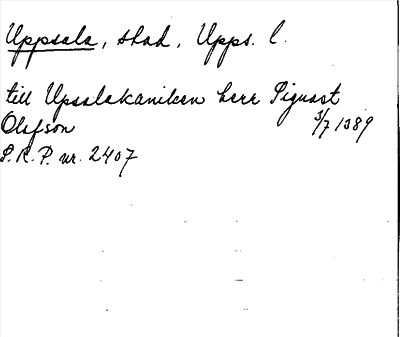 Uppsala, stad, Upps. l.
till Upsalakaniken herr Siguast
Olafson 3/7 1389
S.R.P. nr. 2407